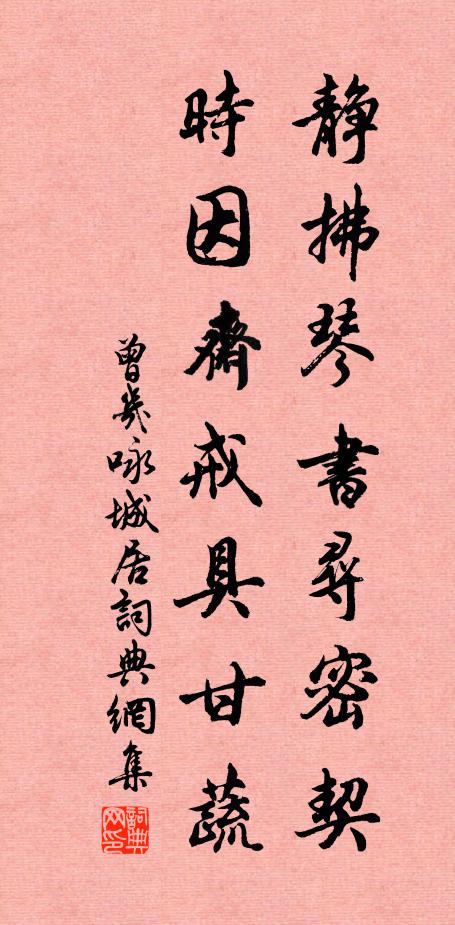 静拂琴書尋密契
時因齋戒具甘蔬
曾幾咏城居詞典網集
詞典网印